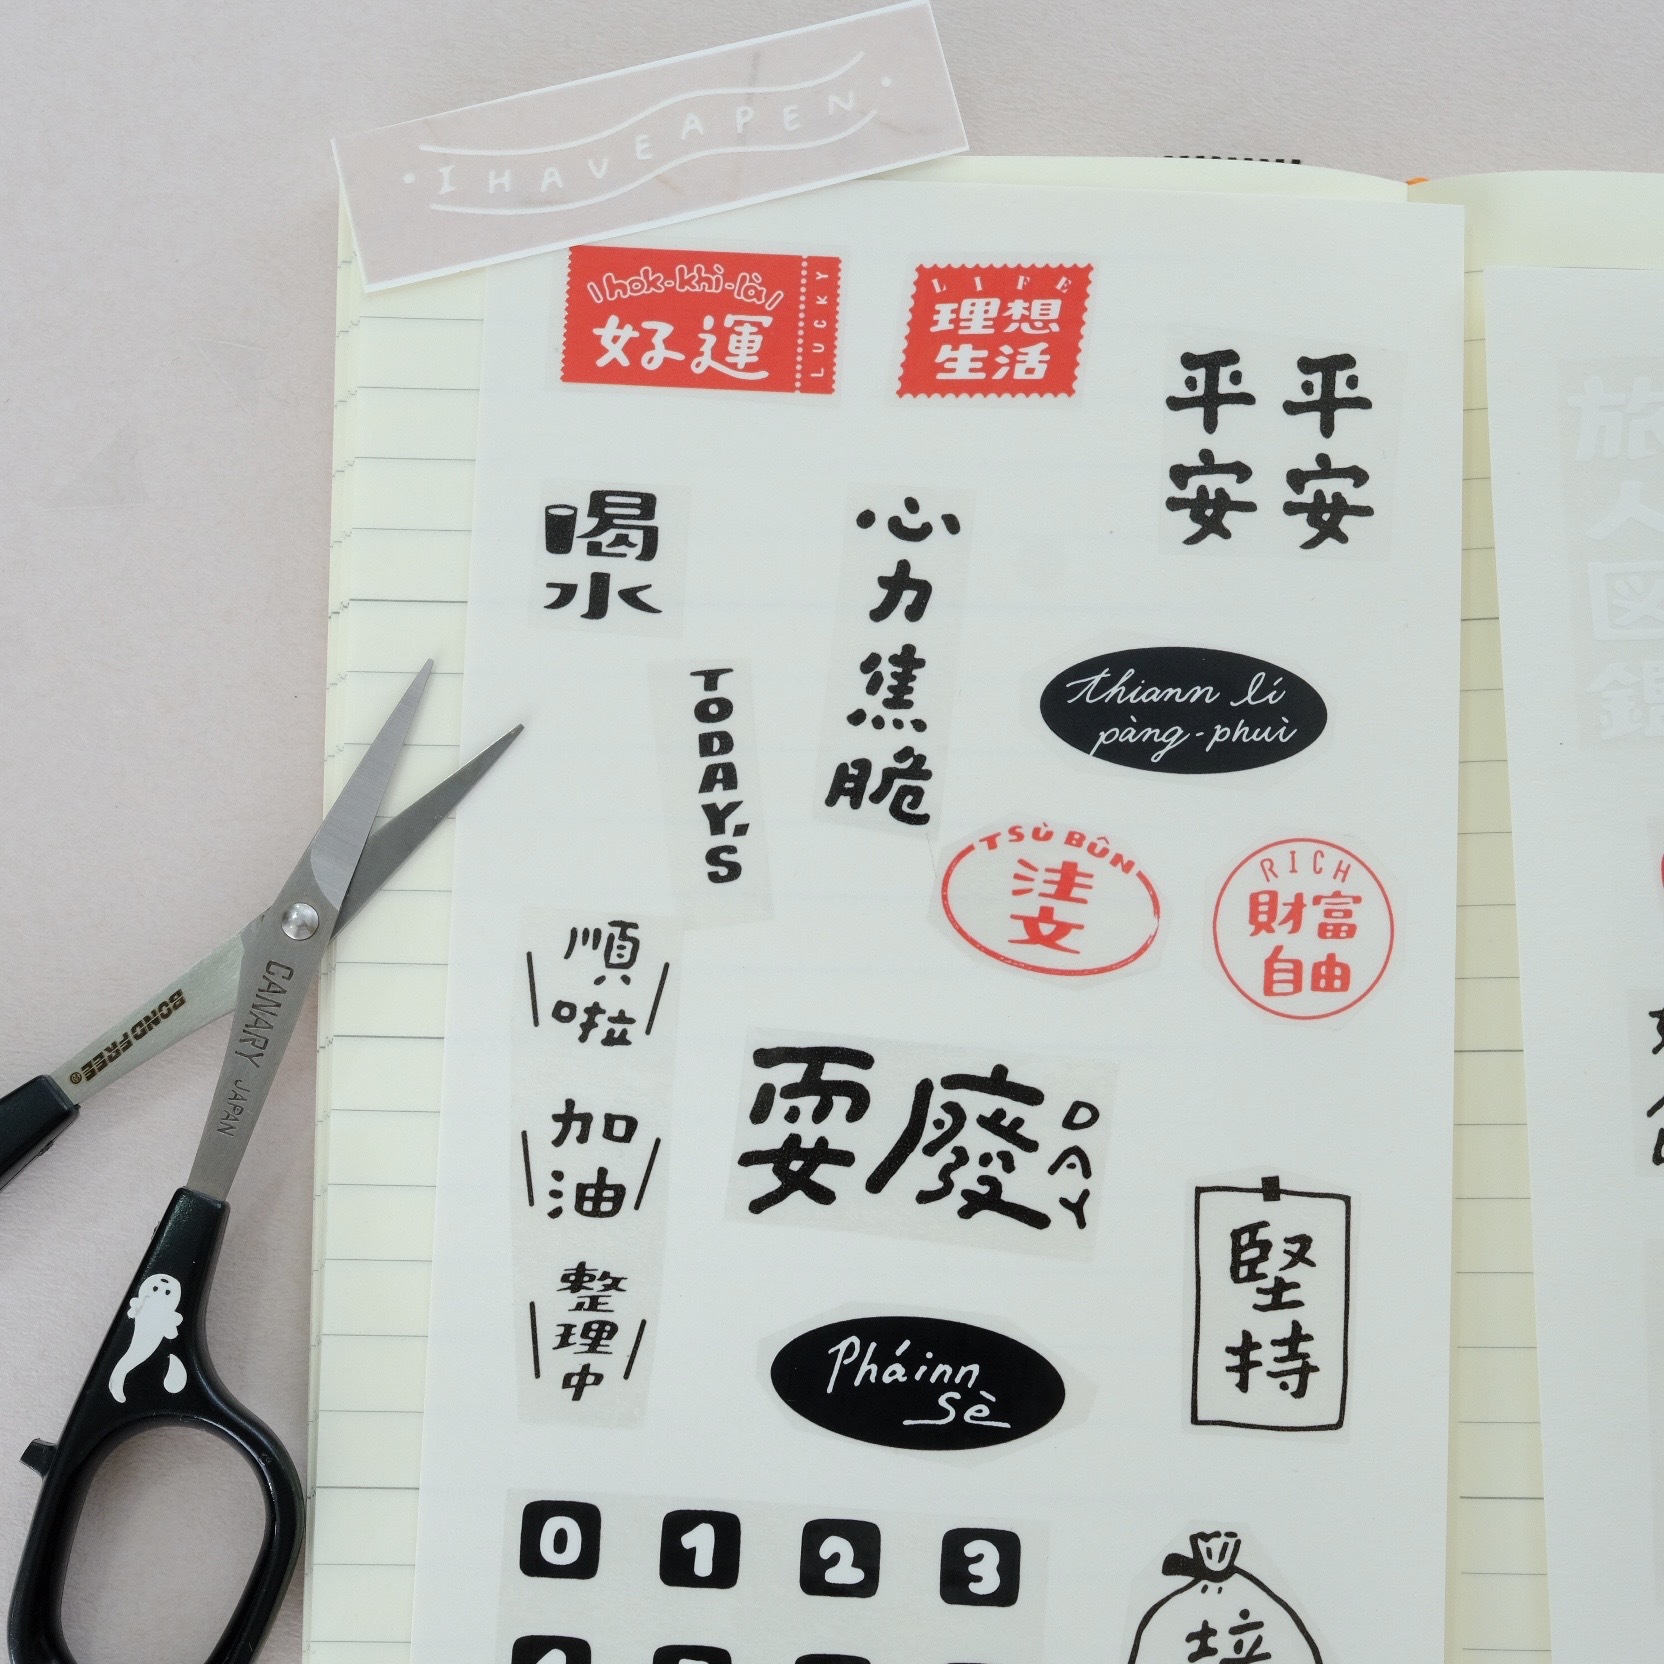 I HAVE A PEN
hok-khì-là
好運
LUCKY
LIFE
理想
生活
平安
平安
喝水
心力焦脆
TODAY'S
thiann lí
pàng-phuì
TSÙ BÛN
注文
RICH
財富
自由
順啦
加油
整理中
耍廢
DAY
堅持
Pháinn
Sè
0 1 2 3
CANARY JAPAN
BONDFREE®
旅人図鑑